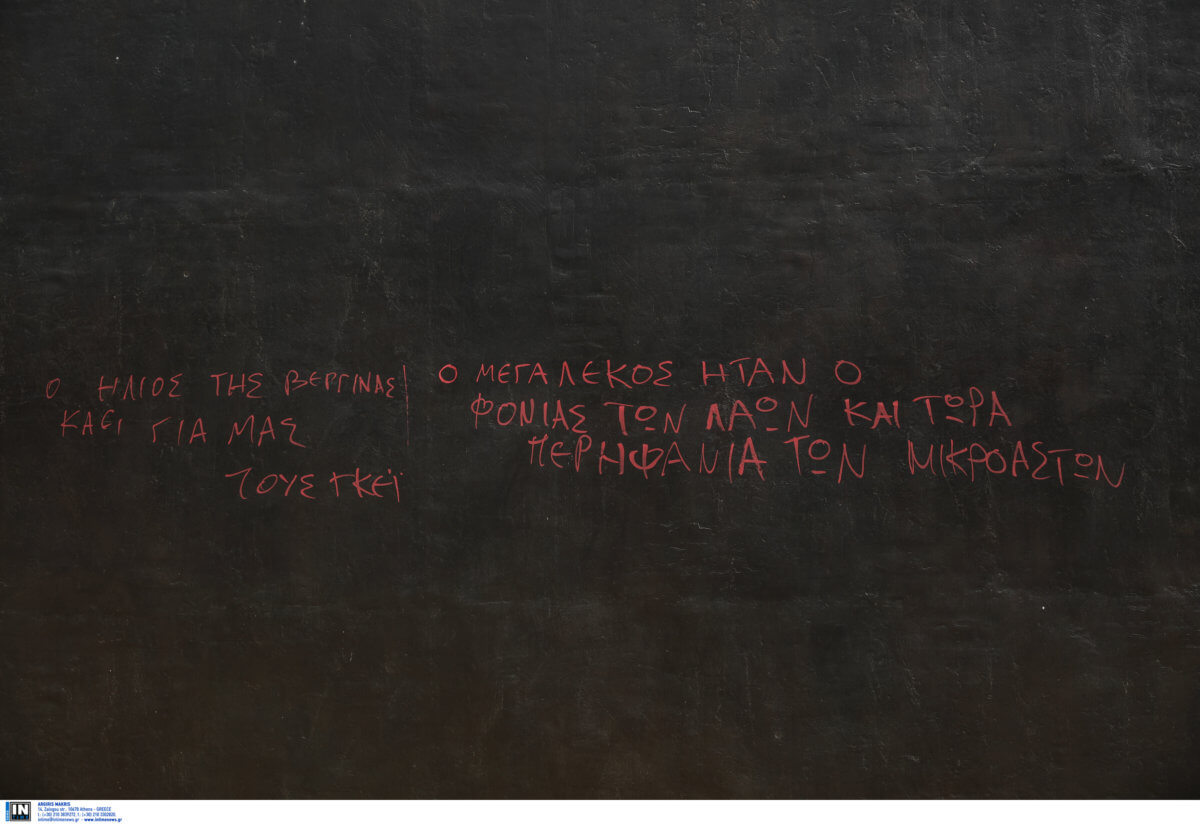 Ο ΗΛΙΟΣ ΤΗΣ ΒΕΡΓΙΝΑΣ
ΚΑΕΙ ΓΙΑ ΜΑΣ
ΤΟΥΣ ΓΚΕΪ
Ο ΜΕΓΑΛΕΚΟΣ ΗΤΑΝ Ο
ΦΟΝΙΑΣ ΤΩΝ ΛΑΩΝ ΚΑΙ ΤΩΡΑ
ΠΕΡΗΦΑΝΙΑ ΤΩΝ ΜΙΚΡΟΑΣΤΩΝ
IN
TIME
ANGIRIS MAKRIS
14, Zalogou str. 10678 Athens - GREECE
t: (+30) 210 3839272, f: (+30) 210 3302820,
intime@intimenews.gr - www.intimenews.gr